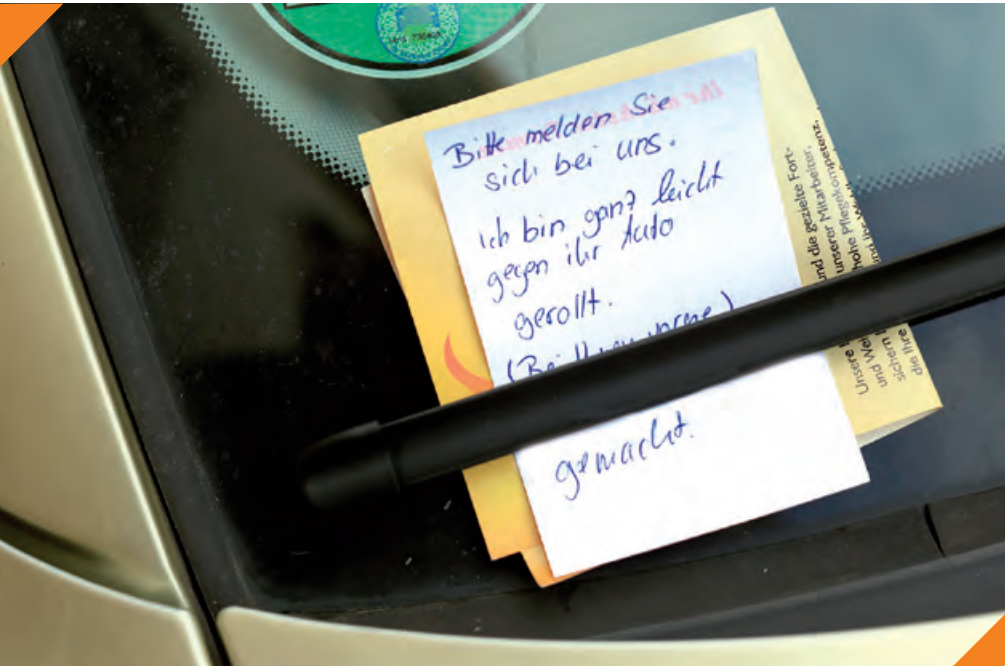 Bitte melden Sie
sich bei uns.
ich bin ganz leicht
gegen ihr Auto
gerollt.
(Bei vorne)
gemacht.
Unsere und die gezielte Fort-
und unserer Mitarbeiter,
sichern hohe Pflegekompetenz,
die Ihre